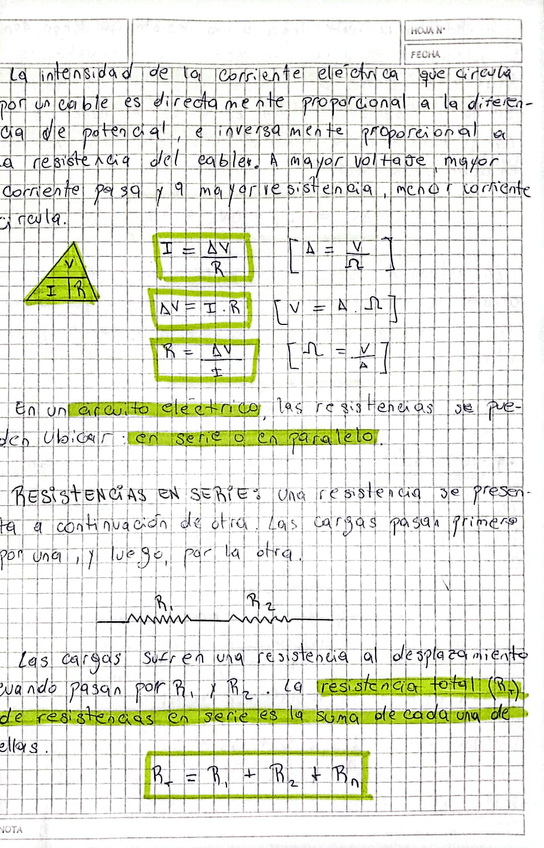 HOJA N°
FECHA
La intensidad de la corriente eléctrica que circula
por un cable es directamente proporcional a la diferen-
cia de potencial, e inversamente proporcional a
a resistencia del cable. A mayor voltaje, mayor
corriente pasa y a mayor resistencia, menor corriente
circula.
V
I R
I = ΔV / R [A = V / Ω]
ΔV = I . R [V = A . Ω]
R = ΔV / I [Ω = V / A]
En un circuito eléctrico, las resistencias se pue-
den ubicar: en serie o en paralelo.
RESISTENCIAS EN SERIE: una resistencia se presen-
ta a continuación de otra. Las cargas pasan primero
por una, y luego, por la otra.
R₁ R₂
Las cargas sufren una resistencia al desplazamiento
cuando pasan por R₁ y R₂. La resistencia total (R_T)
de resistencias en serie es la suma de cada una de
ellas.
R_T = R₁ + R₂ + Rn
NOTA